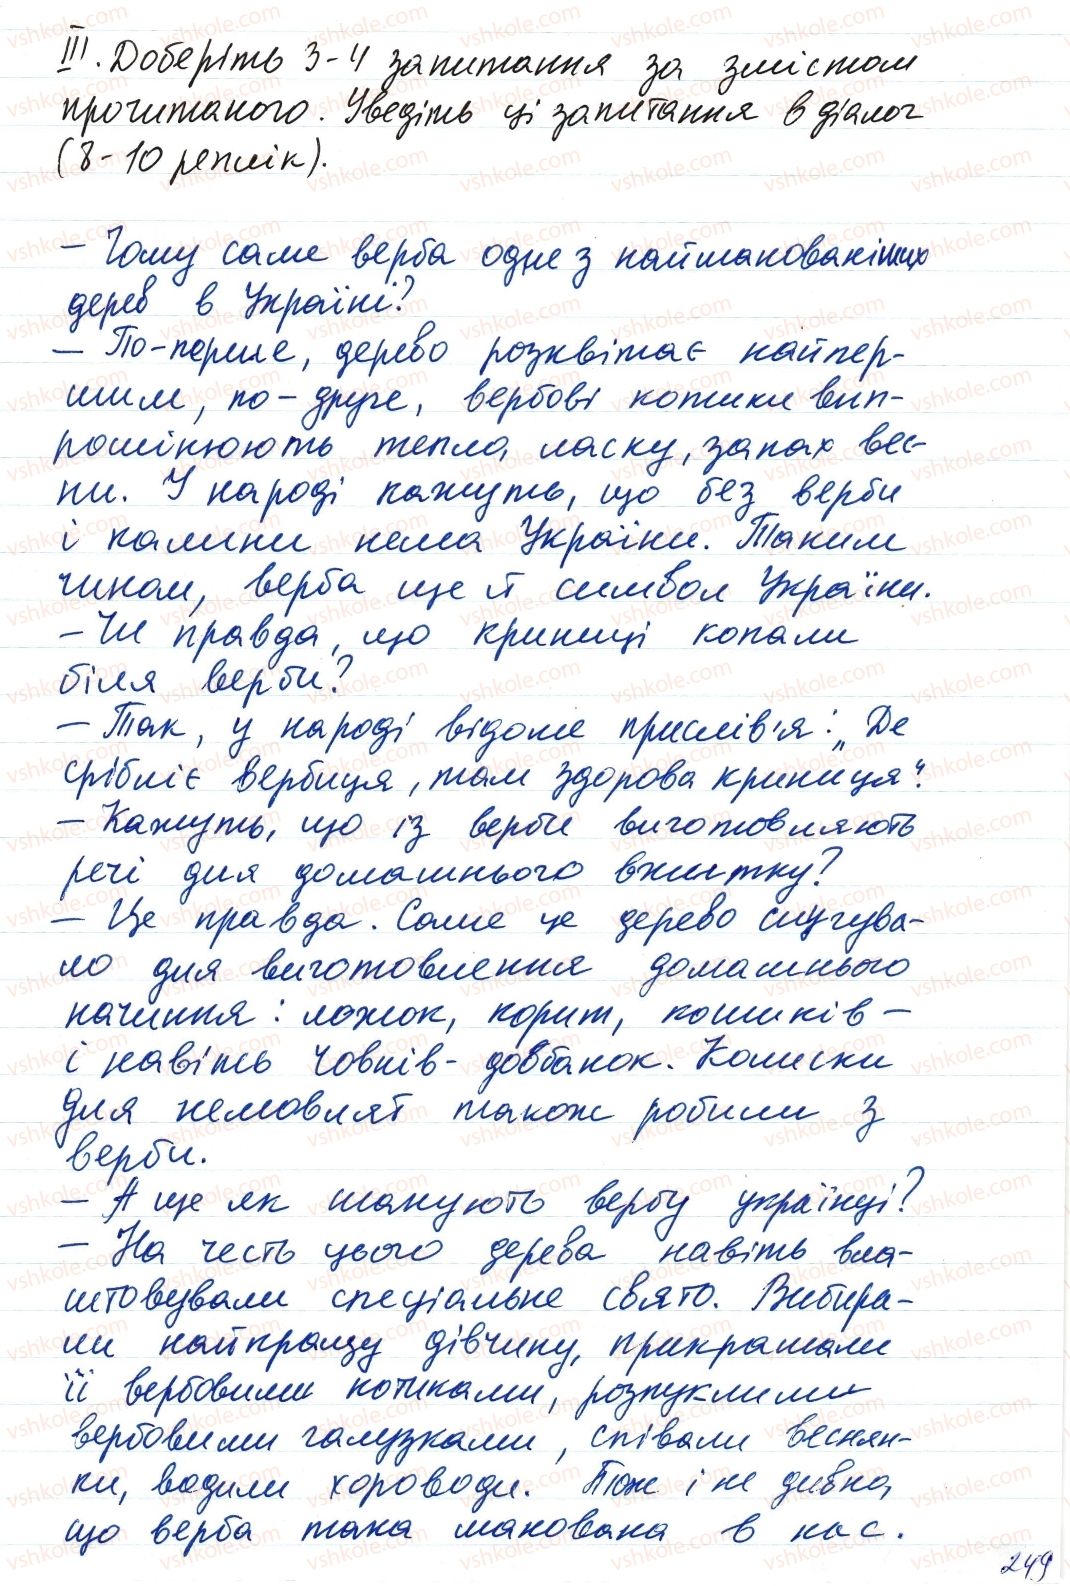 III. Доберіть 3-4 запитання за змістом
прочитаного. Уведіть ці запитання в діалог
(8-10 реплік).
– Чому саме верба одне з найшанованіших
дерев в Україні?
– По-перше, дерево розквітає найпер-
шим, по-друге, вербові котики вип-
ромінюють тепло, ласку, запах вес-
ни. У народі кажуть, що без верби
і калини нема України. Таким
чином, верба ще й символ України.
– Чи правда, що криниці копали
біля верби?
– Так, у народі відоме прислів'я: „Де
срібліє вербиця, там здорова криниця".
– Кажуть, що із верби виготовляють
речі для домашнього вжитку?
– Це правда. Саме це дерево слугува-
ло для виготовлення домашнього
начиння: ложок, корит, кошиків –
і навіть човнів-довбанок. Колиски
для немовлят також робили з
верби.
– А ще як шанують вербу українці?
– На честь цього дерева навіть вла-
штовували спеціальне свято. Вибира-
ли найкращу дівчину, прикрашали
її вербовими котиками, розпуклими
вербовими галузками, співали веснян-
ки, водили хороводи. Тож і не дивно,
що верба така шанована в нас.
249